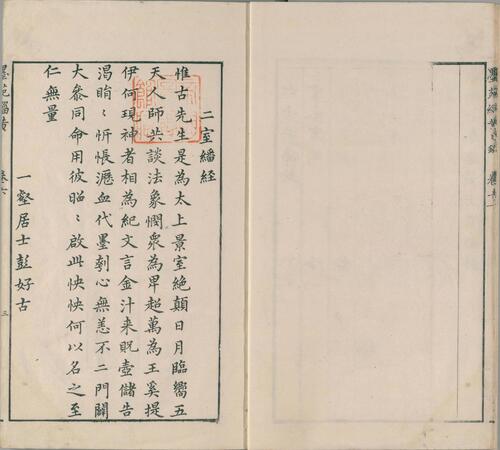 二室繙經
惟古先生是為太上景室絶顛日月臨嚮五
天人師共談法象憫衆為卑超萬為王奚提
伊何現神者相為紀文言金汁来貺壺儲告
渴眴〻忻悵瀝血代墨剜心無恙不二門闢
大叅同命用彼㫚〻啟此怏怏何以名之至
仁無量
一壑居士彭好古
三